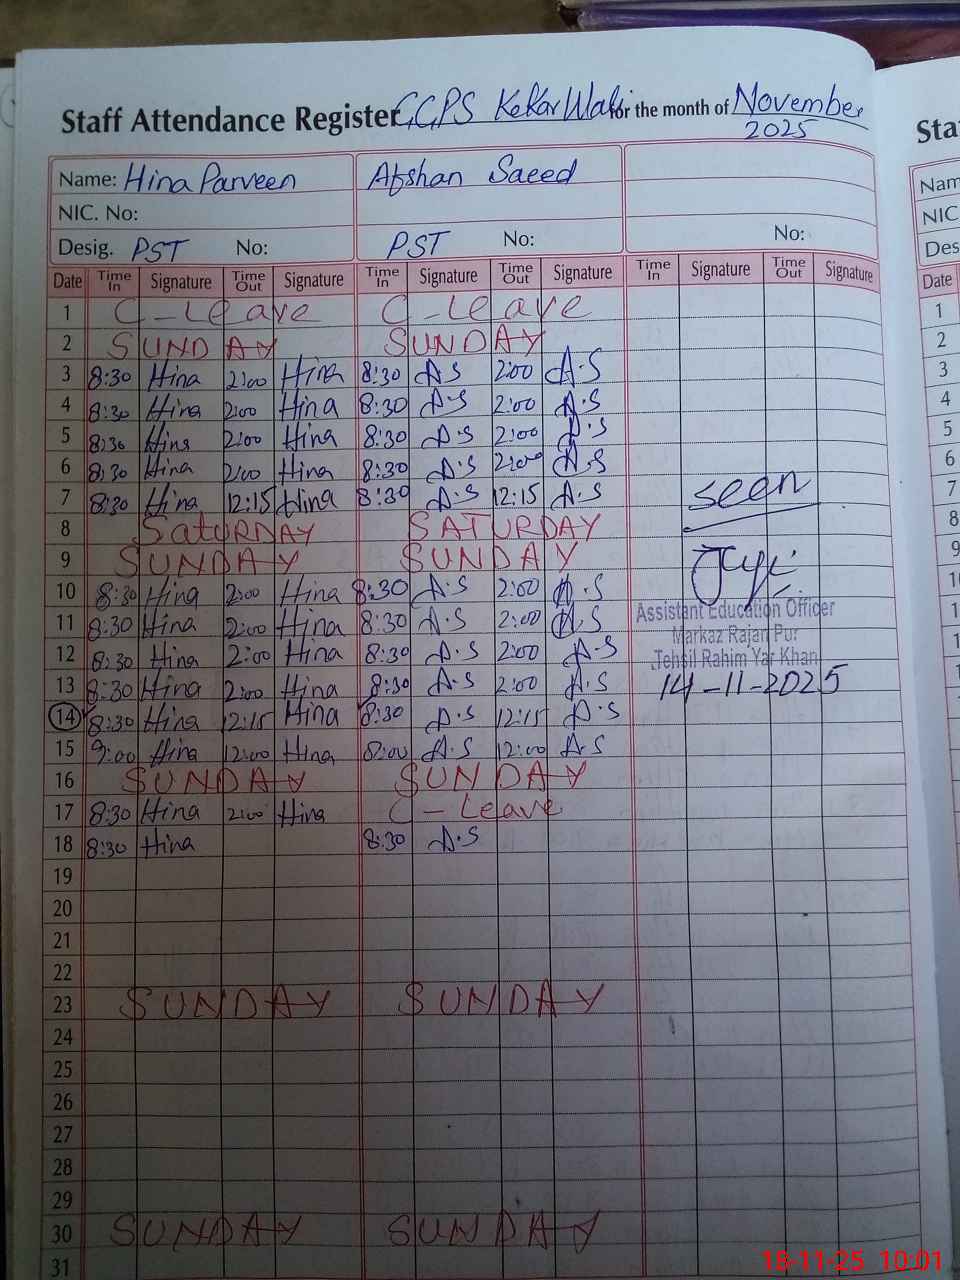 Staff Attendance Register GCPS KeKar Wali for the month of November
2025
Name: Hina Parveen Afshan Saeed
NIC. No:
Desig. PST No: PST No: No:
Date Time In Signature Time Out Signature Time In Signature Time Out Signature Time In Signature Time Out Signature
1 C-Leave C-Leave
2 SUNDAY SUNDAY
3 8:30 Hina 2:00 Hina 8:30 A.S 2:00 A.S
4 8:30 Hina 2:00 Hina 8:30 A.S 2:00 A.S
5 8:30 Hina 2:00 Hina 8:30 A.S 2:00 A.S
6 8:30 Hina 2:00 Hina 8:30 A.S 2:00 A.S
7 8:30 Hina 12:15 Hina 8:30 A.S 12:15 A.S
seen
8 SaTURDAY SATURDAY
9 SUNDAY SUNDAY
10 8:30 Hina 2:00 Hina 8:30 A.S 2:00 A.S
Assistant Education Officer
11 8:30 Hina 2:00 Hina 8:30 A.S 2:00 A.S
Markaz Rajan Pur
12 8:30 Hina 2:00 Hina 8:30 A.S 2:00 A.S
Tehsil Rahim Yar Khan
13 8:30 Hina 2:00 Hina 8:30 A.S 2:00 A.S
14-11-2025
14 8:30 Hina 12:15 Hina 8:30 A.S 12:15 A.S
15 9:00 Hina 12:00 Hina 8:00 A.S 12:00 A.S
16 SUNDAY SUNDAY
17 8:30 Hina 2:00 Hina C-Leave
18 8:30 Hina 8:30 A.S
19
20
21
22
23 SUNDAY SUNDAY
24
25
26
27
28
29
30 SUNDAY SUNDAY
31
18-11-25 10:01
Sta
Nam
NIC
Des
Date
1
2
3
4
5
6
7
8
9